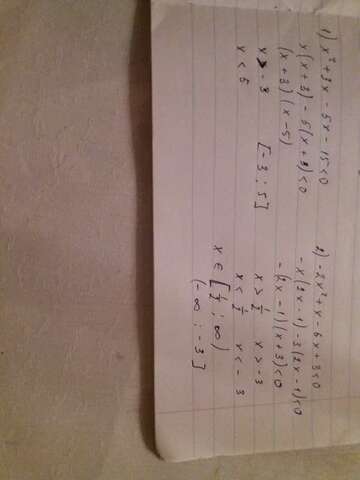 1) x² + 3x - 5x - 15 < 0
x(x+3) - 5(x+3) < 0
(x+3)(x-5)
x > -3
x < 5
[-3 ; 5]
2) -2x² + x - 6x + 3 < 0
-x(2x-1) - 3(2x-1) < 0
-(2x-1)(x+3) < 0
x > ½ x > -3
x < ½ x < -3
x ∈ [½ ; ∞)
(-∞ ; -3]